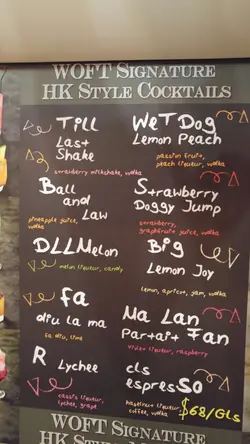 WOFT SIGNATURE
HK STYLE COCKTAILS
Till
Last
Shake
strawberry milkshake, vodka
WeT Dog
Lemon Peach
passion fruit,
peach liqueur, vodka
Ball
and
Law
pineapple juice,
vodka
Strawberry
Doggy Jump
strawberry,
grapefruit juice, vodka
DLLMelon
melon liqueur, candy
Big
Lemon Joy
lemon, apricot, yam, vodka
fa
diu la ma
fa diu, lima
Ma Lan
Par+ai+ Fan
violet liqueur, raspberry
R Lychee
cassis liqueur,
lychee, grape
cls
espresSO
hazelnut liqueur,
coffee, vodka
$68/GLs
WOFT SIGNATURE
HK STYLE COCKTAILS